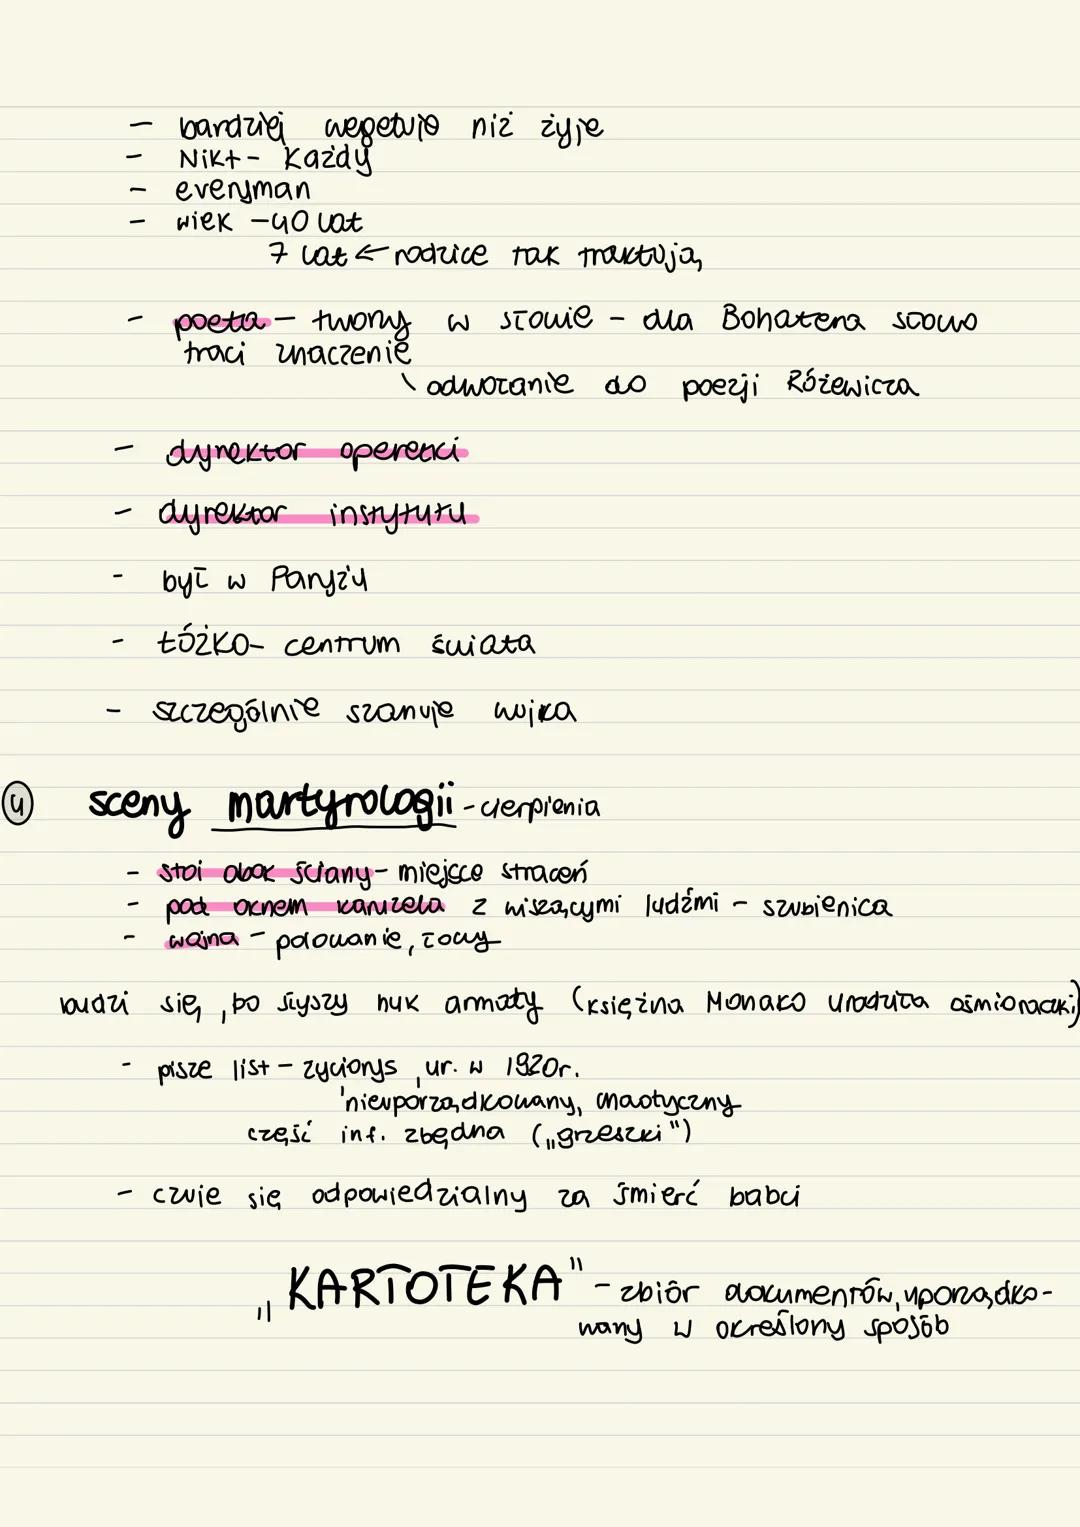 - bardziej wegetuje niż żyje
- Nikt - Każdy
- everyman
- wiek - 40 lat
7 lat ← rodzice tak traktują
- poeta - tworzy w słowie - dla Bohatera słowo
traci znaczenie
\ odwołanie do poezji Różewicza
- dyrektor operetki
- dyrektor instytutu
- był w Paryżu
- łóżko - centrum świata
- szczególnie szanuje wujka
4 sceny martyrologii - cierpienia
- stoi obok ściany - miejsce straceń
- pod oknem karuzela z wiszącymi ludźmi - szubienica
- wojna - polowanie, łowy
budzi się, bo słyszy huk armaty (księżna Monako urodziła ośmioraczki)
- pisze list - życiorys, ur. w 1920r.
'nieuporządkowany, chaotyczny
część inf. zbędna („grzeszki")
- czuje się odpowiedzialny za śmierć babci
„KARTOTEKA" - zbiór dokumentów, uporządko-
wany w określony sposób